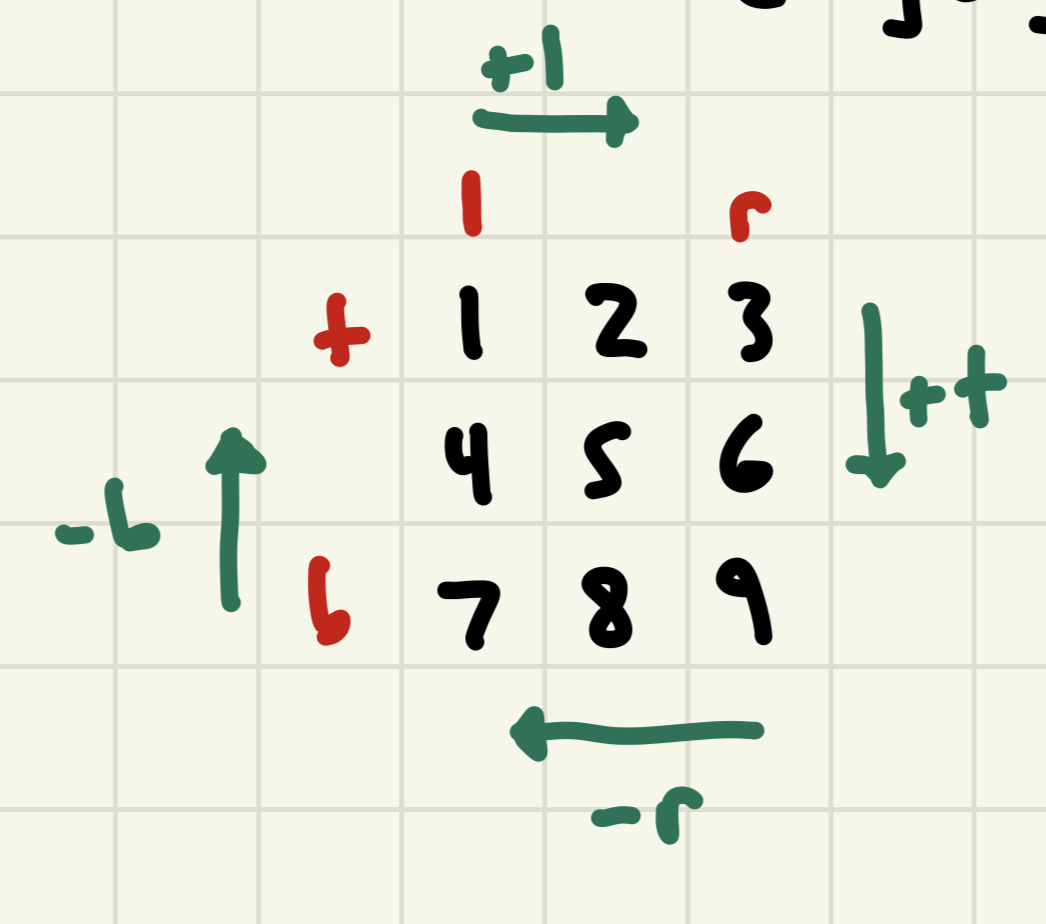 +l
l r
t 1 2 3
+t
4 5 6
-b
b 7 8 9
-r